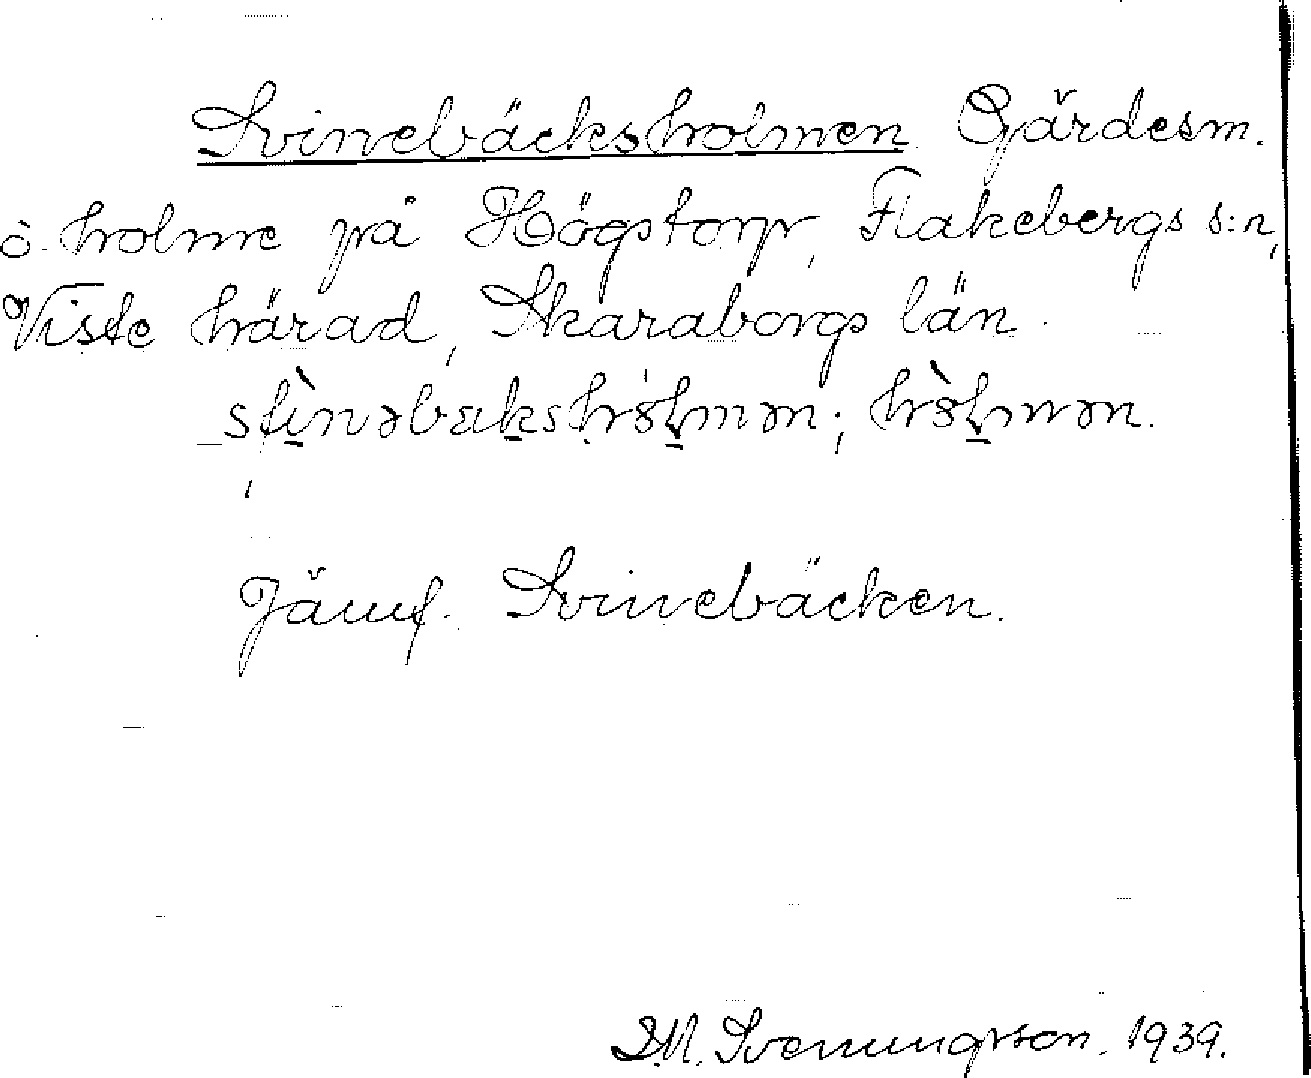 Svinebäcksholmen Gärdesm.
o. holme på Högstorp, Flakebergs s:n,
Viste härad, Skaraborgs län.
Jämf. Svinebäcken.
Svenungsson. 1939.